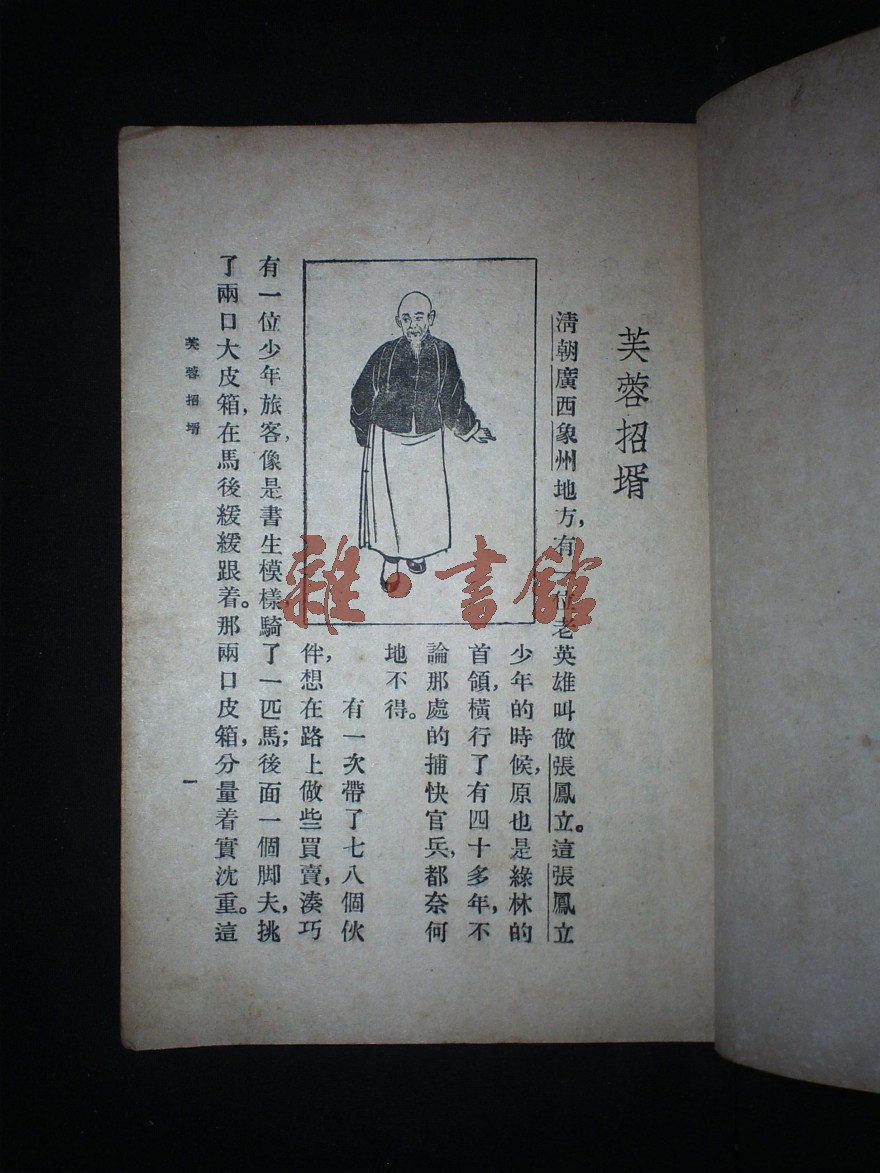 芙蓉招壻
清朝廣西象州地方，有一位老英雄叫做張鳳立。這張鳳立
少年的時候，原也是綠林的
首領，橫行了有四十多年，不
論那處的捕快官兵，都奈何
地不得。
有一次帶了七八個伙
伴，想在路上做些買賣，湊巧
有一位少年旅客，像是書生模樣，騎了一匹馬；後面一個脚夫，挑
了兩口大皮箱，在馬後緩緩跟着。那兩口皮箱，分量着實沈重。這
芙蓉招壻
一
雜·書館